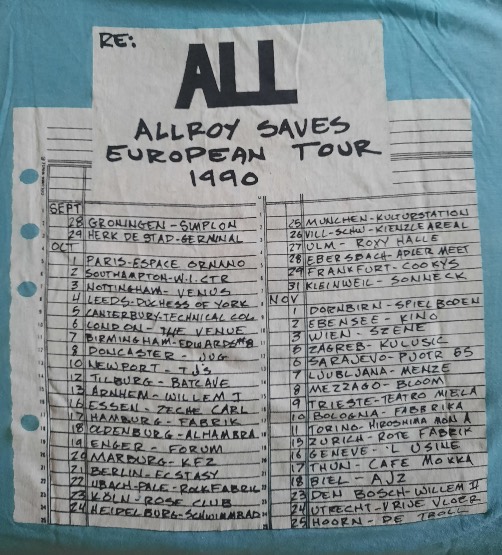 RE:
ALL
ALLROY SAVES
EUROPEAN TOUR
1990
SEPT
28 GRONINGEN - SIMPLON
29 HERK DE STAD - GERMINAL
OCT
1 PARIS - ESPACE ORNANO
2 SOUTHAMPTON - W.I. CTR
3 NOTTINGHAM - VENUS
4 LEEDS - DUCHESS OF YORK
5 CANTERBURY - TECHNICAL COL.
6 LONDON - THE VENUE
7 BIRMINGHAM - EDWARDS #8
8 DONCASTER - JUG
10 NEWPORT - TJ'S
12 TILBURG - BATCAVE
13 ARNHEM - WILLEM I
16 ESSEN - ZECHE CARL
17 HAMBURG - FABRIK
18 OLDENBURG - ALHAMBRA
19 ENGER - FORUM
20 MARBURG - KFZ
21 BERLIN - ECSTASY
22 UBACH-PALE - ROCKFABRIK
23 KÖLN - ROSE CLUB
24 HEIDELBURG - SCHWIMMBAD
25 MUNCHEN - KULTURSTATION
26 VILL-SCHW - KIENZLEAREAL
27 ULM - ROXY HALLE
28 EBERSBACH - ADLER MEET
29 FRANKFURT - COOKYS
31 KLEINWEIL - SONNECK
NOV
1 DORNBIRN - SPIELBODEN
2 EBENSEE - KINO
3 WIEN - SZENE
5 ZAGREB - KULUSIC
6 SARAJEVO - 65
7 LJUBLJANA - MENZE
8 MEZZAGO - BLOOM
9 TRIESTE - TEATRO MIELA
10 BOLOGNA - FABBRIKA
11 TORINO - HIROSHIMA MON A
15 ZURICH - ROTE FABRIK
16 GENEVE - 'L USINE
17 THUN - CAFE MOKKA
18 BIEL - AJZ
23 DEN BOSCH - WILLEM II
24 UTRECHT - VRIJE VLOER
25 HOORN - DE TROLL